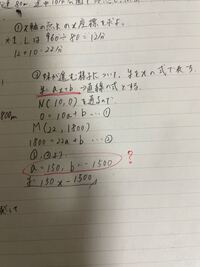 ①x軸の点Lのx座標を求よ。
*1. Lは 960÷80=12分
12+10=22分
②妹が進む様子について、yをxの式で表す
y=ax+b →直線の式とする。
N(10,0)を通るので
0=10a+b …①
M(22,1800)
1800=22a+b …②
①,②より
a=150, b=-1500
?
y=150x-1500